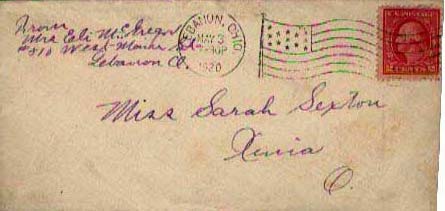 From
Mrs Eli McGregor
#510 West Main St.
Lebanon O.
LEBANON, OHIO
MAY 3
30P
1920
U.S. POSTAGE
2 CENTS 2
Miss Sarah Sexton
Xenia
O.